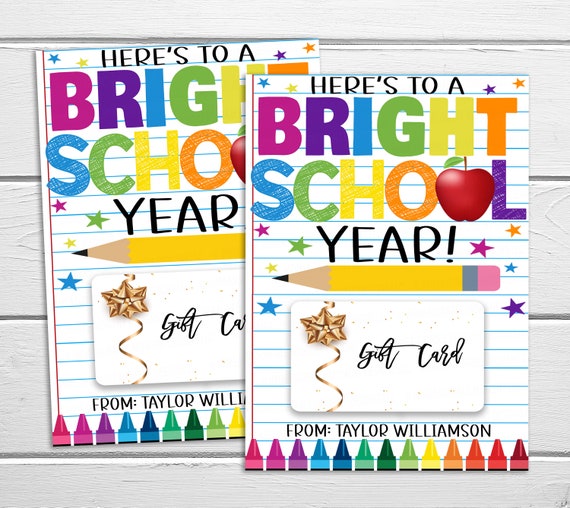 HERE'S TO A
BRIGHT
SCHO
YEAR
Gift
FROM: TAYLOR WILLIAM
HERE'S TO A
BRIGHT
SCHOOL
YEAR!
Gift Card
FROM: TAYLOR WILLIAMSON